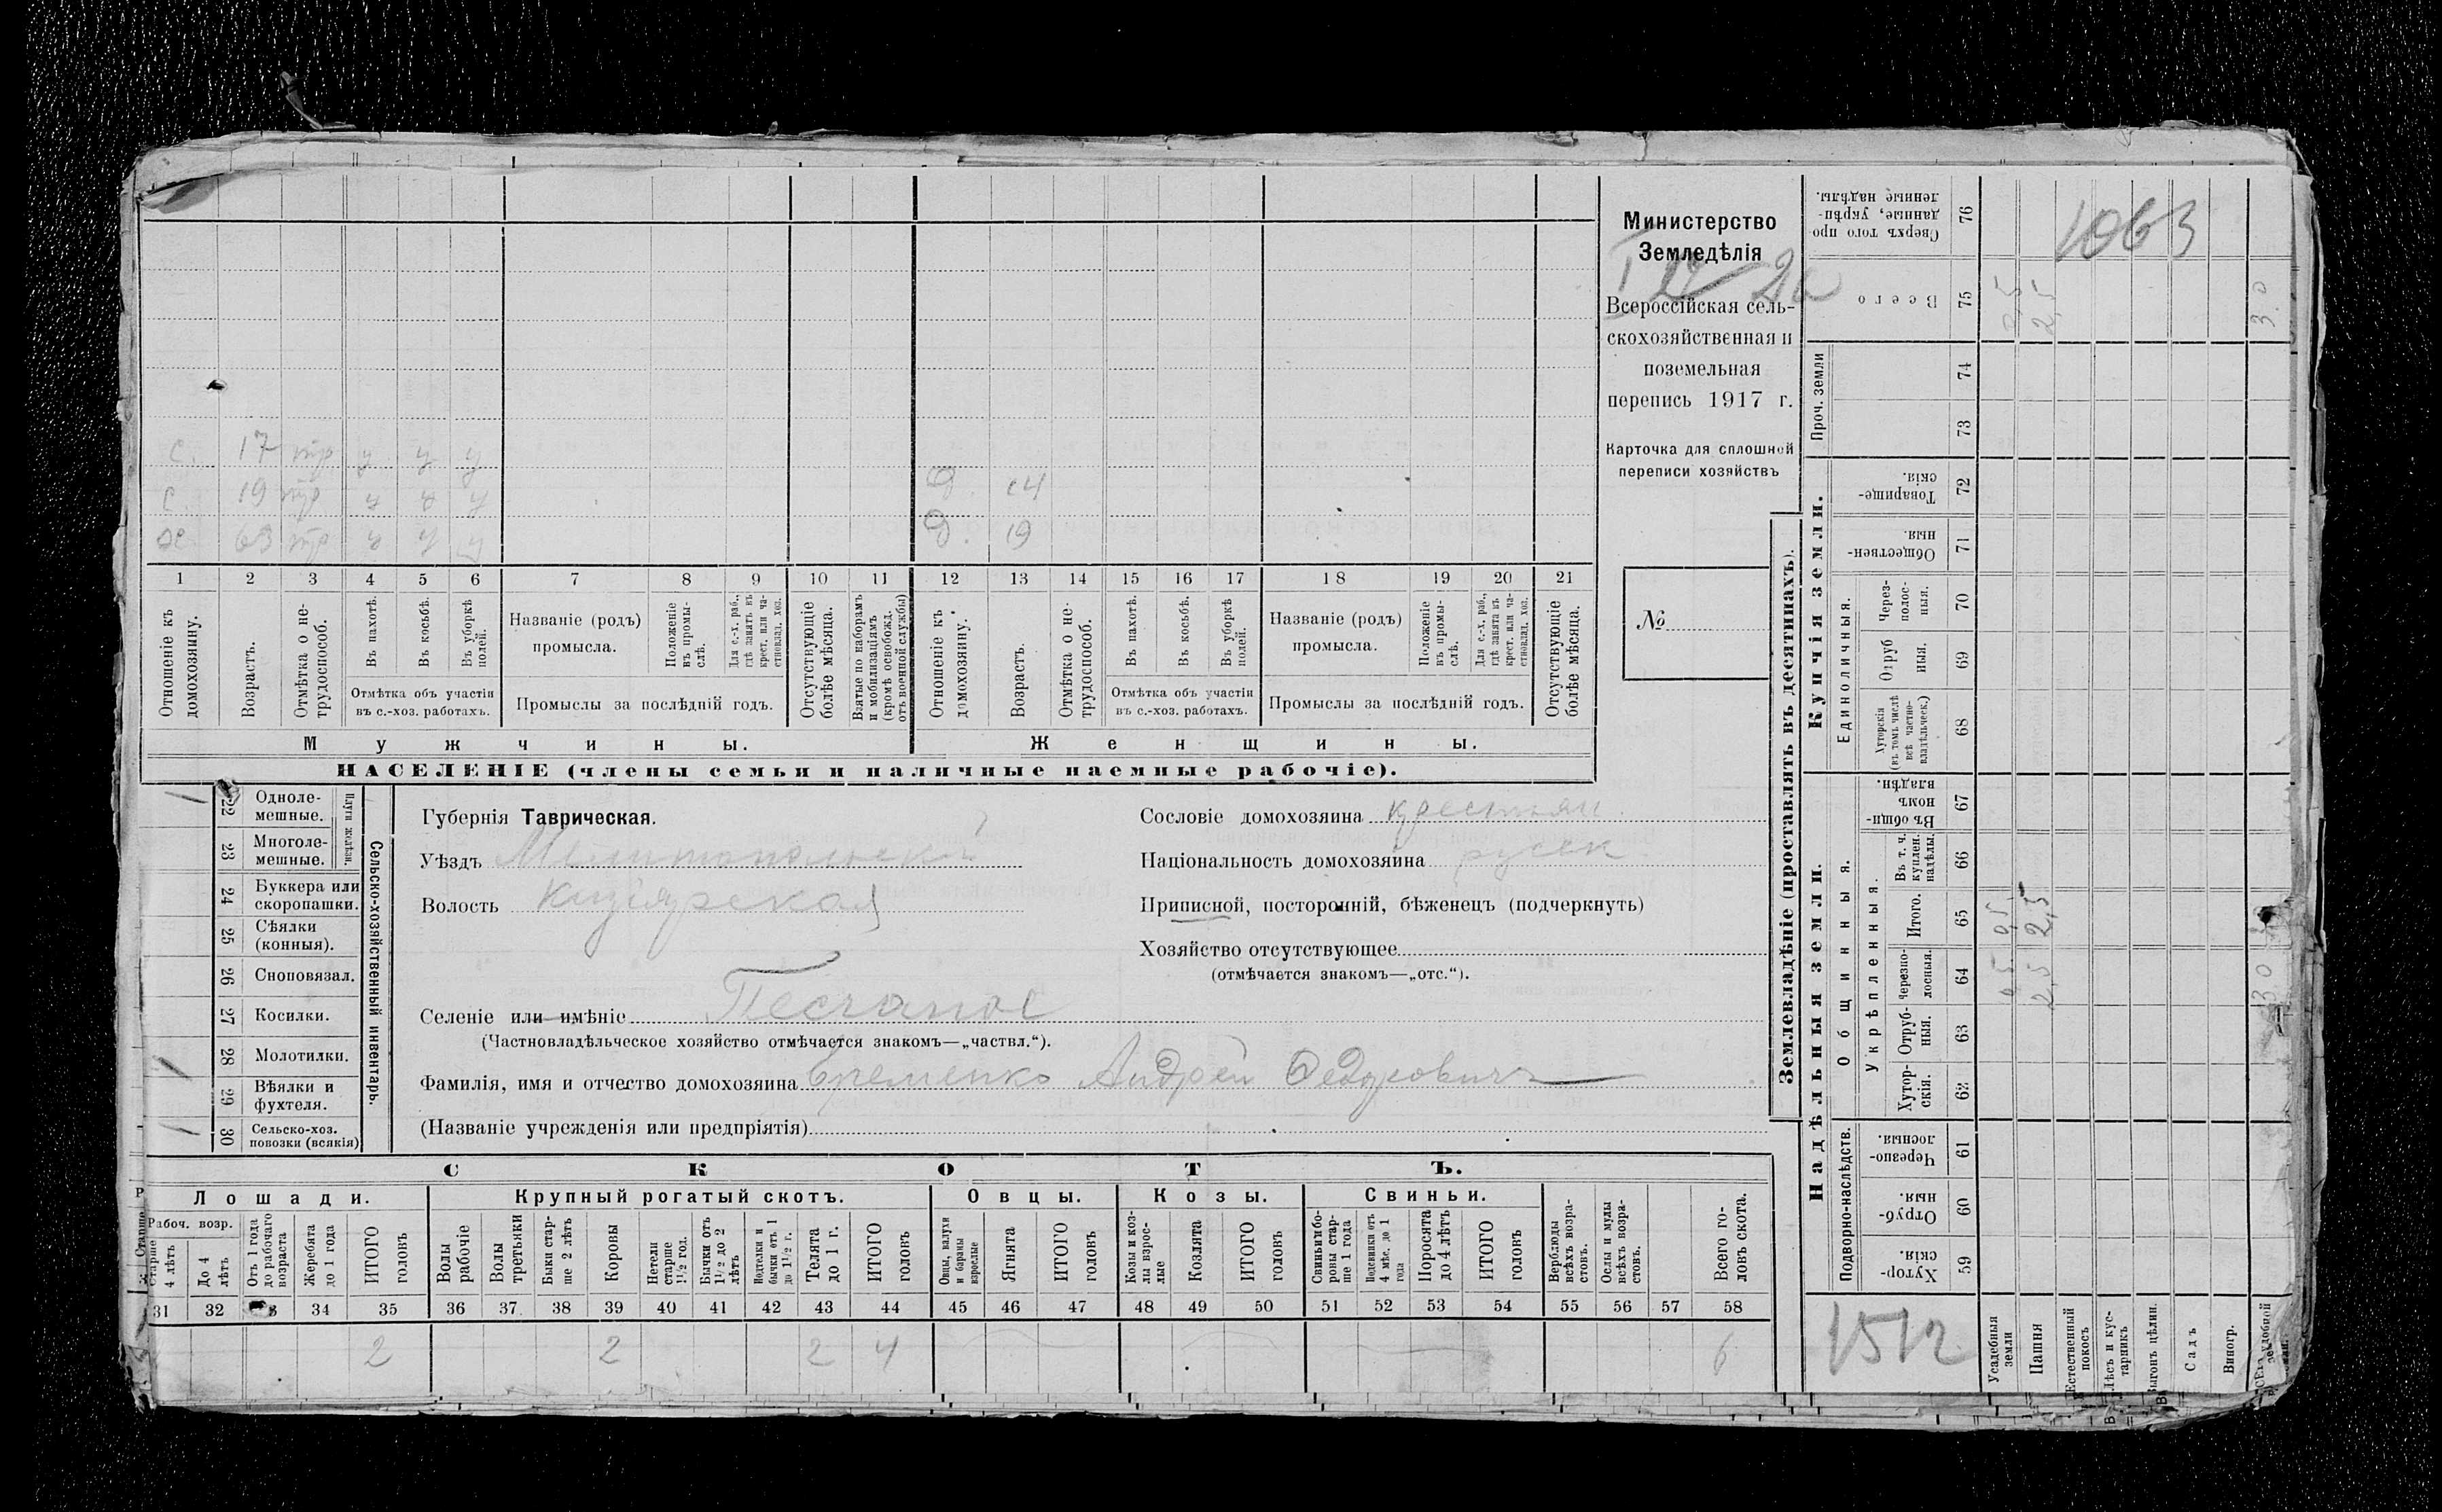 с. 17 тр у у у
с. 19 тр у у у
Д. 14
х 63 тр у у у
Д. 19
1 2 3 4 5 6 7 8 9 10 11 12 13 14 15 16 17 18 19 20 21
Отношеніе къ домохозяину.
Возрастъ.
Отмѣтка о не-трудоспособ.
Въ пахотѣ.
Въ косьбѣ.
Въ уборкѣ полей.
Отмѣтка объ участіи
въ с.-хоз. работахъ.
Названіе (родъ)
промысла.
Положеніе въ промы-слѣ.
Для с.-х. раб., гдѣ занятъ въ крест. или ча-стновлад. хоз.
Промыслы за послѣдній годъ.
Отсутствующіе болѣе мѣсяца.
Взятые по наборамъ и мобилизаціямъ (кромѣ освобожд. отъ военной службы)
Отношеніе къ домохозяину.
Возрастъ.
Отмѣтка о не-трудоспособ.
Въ пахотѣ.
Въ косьбѣ.
Въ уборкѣ полей.
Отмѣтка объ участіи
въ с.-хоз. работахъ.
Названіе (родъ)
промысла.
Положеніе въ промы-слѣ.
Для с.-х. раб., гдѣ занята въ крест. или ча-стновлад. хоз.
Промыслы за послѣдній годъ.
Отсутствующіе болѣе мѣсяца.
Мужчины.
Женщины.
НАСЕЛЕНІЕ (члены семьи и наличные наемные рабочіе).
Министерство
Земледѣлія
Всероссійская сель-
скохозяйственная и
поземельная
перепись 1917 г.
Карточка для сплошной
переписи хозяйствъ
№
22 Одноле-мешные.
23 Многоле-мешные.
Плуги желѣзн.
24 Буккера или скоропашки.
25 Сѣялки (конныя).
26 Сноповязал.
27 Косилки.
28 Молотилки.
29 Вѣялки и фухтеля.
30 Сельско-хоз. повозки (всякія)
Сельско-хозяйственный инвентарь.
Губернія Таврическая.
Уѣздъ Мелитопольскій
Волость Кизіярская
Селеніе или имѣніе Песчаное
(Частновладѣльческое хозяйство отмѣчается знакомъ—„частвл.“).
Фамилія, имя и отчество домохозяина Еременко Андрей Федоровичъ
(Названіе учрежденія или предпріятія)
Сословіе домохозяина крестьян.
Національность домохозяина русск.
Приписной, посторонній, бѣженецъ (подчеркнуть)
Хозяйство отсутствующее
(отмѣчается знакомъ—„отс.“).
СКОТЪ.
Лошади.
Крупный рогатый скотъ.
Овцы.
Козы.
Свиньи.
Рабоч. возр.
Старше 4 лѣтъ
До 4 лѣтъ
Отъ 1 года до рабочаго возраста
Жеребята до 1 года
ИТОГО головъ
Волы рабочіе
Волы третьяки
Быки стар-ше 2 лѣтъ
Коровы
Нетели старше 1½ год.
Бычки отъ 1½ до 2 лѣтъ
Нодтелки и бычки отъ 1 до 1½ г.
Телята до 1 г.
ИТОГО головъ
Овцы, валухи и бараны взрослые
Ягнята
ИТОГО головъ
Козы и коз-лы взрос-лые
Козлята
ИТОГО головъ
Свиньи бо-ровы стар-ше 1 года
Подсвинки отъ 4 мѣс. до 1 года
Поросята до 4 лѣтъ
ИТОГО головъ
Верблюды всѣхъ возра-стовъ.
Ослы и мулы всѣхъ возра-стовъ.
Всего го-ловъ скота.
31 32 33 34 35 36 37 38 39 40 41 42 43 44 45 46 47 48 49 50 51 52 53 54 55 56 57 58
2 2 2 4 6
Землевладѣніе (проставлять въ десятинахъ).
Купчія земли.
Надѣльныя земли.
Сверхъ того про-данные, укрѣп-ленные надѣлы. 76
Всего 75
Проч. земли 74 73
Товарище-скія. 72
Обществен-ныя 71
Единоличныя.
Через-полос-ныя. 70
Отруб-ныя. 69
Хуторскія (въ томъ числѣ всѣ частно-владѣльческ.) 68
Общинныя.
Въ общи-номъ владѣн. 67
Укрѣпленныя.
Въ т. ч. куплен. надѣлы. 66
Итого. 65
Черезпо-лосныя. 64
Отруб-ныя. 63
Хутор-скія. 62
Подворно-наслѣдств.
Черезпо-лосныя. 61
Отруб-ныя. 60
Хутор-скія 59
1063
0,5 2,5 3.0
0,5 2,5
0,5 2,5 3.0
1512
Усадебныя земли
Пашня
Естественный покосъ
Лѣсъ и кус-тарникъ
Выгонъ цѣлин.
Садъ
Виногр.